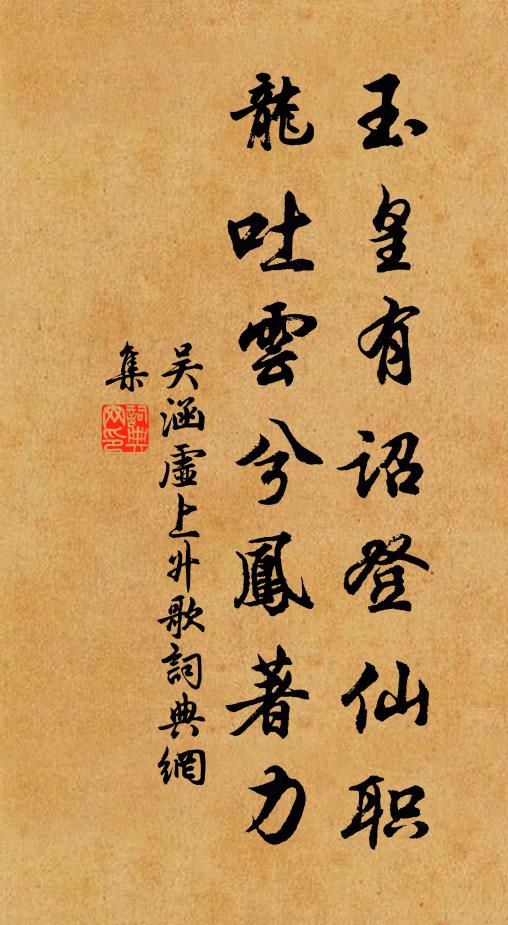 玉皇有诏登仙职
龍吐雲兮鳳著力
吴涵虛上升歌詞典網
集
詞典
网印